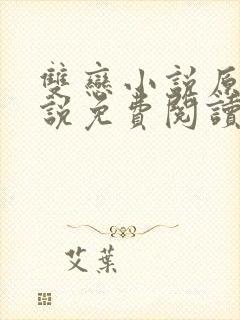 雙戀小說原
說免費閱讀
艾葉